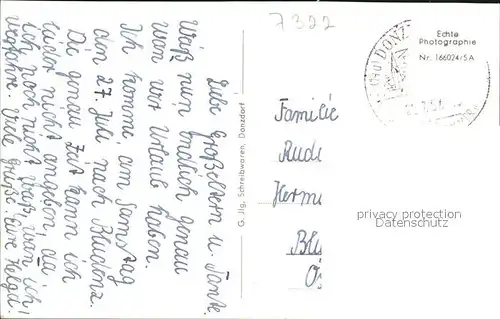 Liebe Großeltern u. Tante.
Weiß nun endlich genau
wan wir Urlaub haben.
Ich komme am Samstag
den 27. Juli nach Bludenz.
Die genau Zeit kann ich
leider nicht angeben, da
ich noch nicht weiß wan ich
wegfahre. Viele grüße. Eure Helga!
G. Jlg, Schreibwaren, Donzdorf
7322
Echte
Photographie
Nr. 166024/5A
DONZ
Familie
Rud
Herm
Blu
Ö
privacy protection
Datenschutz